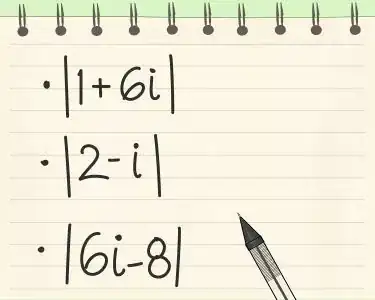 · |1+6i|
· |2-i|
· |6i-8|